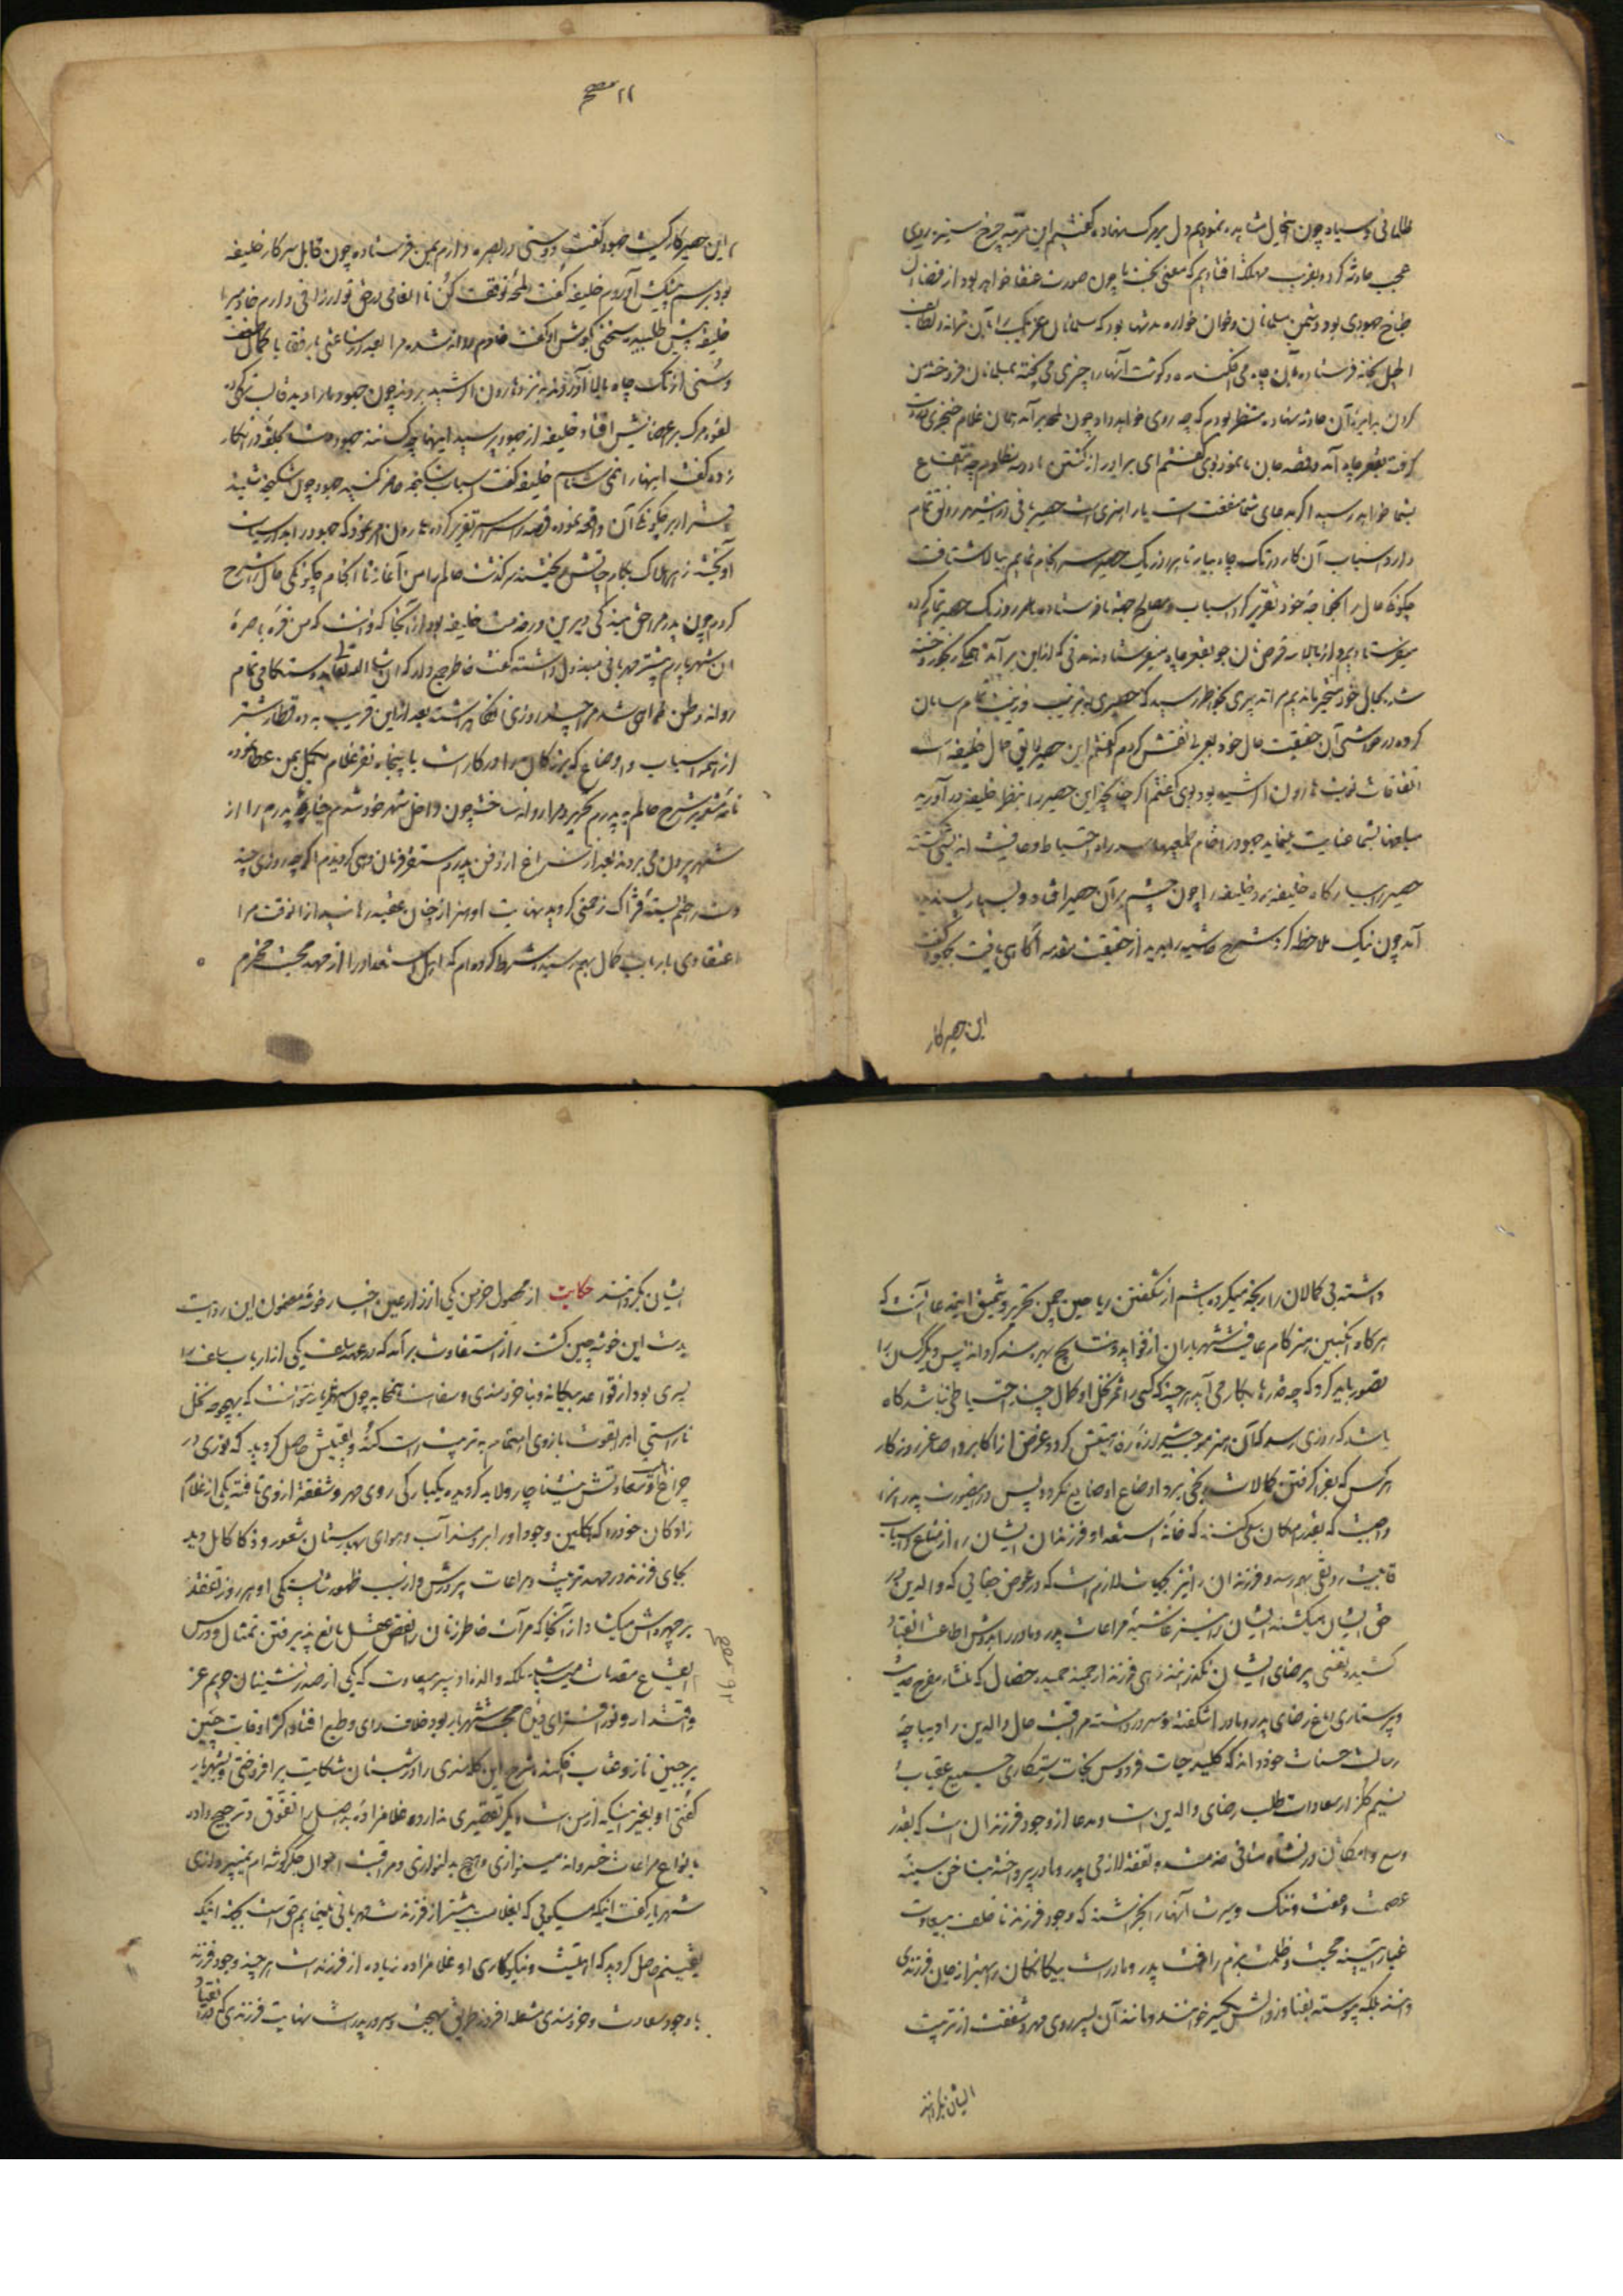 ظلمانی و سیاه چون انحال مشاهده نمودیم دل بر مرک نهاده کفتیم این مرتبه چرخ ستیزه روی
عجب حادثه کرد و بغریب مهلکه افتادیم که معنی بخت ما چون صورت عنقا خواهد بود از قضا آن
طباخ جهودی بود دشمن مسلمانان و خوان خواره مدتها بود که مسلمانان عزیب را بآن بهانه و لطایف
الحیل بخانه فرستاده بآن چاه می افکند و کوشت آنها را چیزی می پخته بمسلمانان فروخته من
کردن بدایره آن حادثه نهاده منتظر بودم که چه روی خواهد داد چون لمحه برآمد همان غلام خنجری بدست
کرفته بقعر چاه آمد و قصد جان ما نمود بوی کفتم ای برادر از کشتن ما دو سه مظلوم چه انتفاع
بشما خواهد رسید اکر مدعای شما منفعت است یار هنری است حصیر بافی در این شهر رونق تمام
دارد اسباب آن کار در تک چاه بیار تا هر روز یک حصیر سرانجام نمایم ببالا شتافت
چکونکی حال را بخواجه خود تقریر کرد اسباب و مصالح جهة ما فرستاده هر روز یک حصیر تمام کرده
میفرستادیم و از بالا سه قرص نان جو بقعر چاه میفرستادند مدتی که از این برآمد
شد بحال خود متحیر ماندیم مرا تدبیری بخاطر رسید که حصیری بزیب و زینت تمام سامان
کرده در حواشی آن حقیقت حال خود بعربی نقش کردم و کفتم این حصیر لایق حال خلیفه است
اتفاقات نوبت هارون الرشید بود بوی کفتم اکر چنانچه این حصیر را بنظر خلیفه در آورید
مبلغها بشما عنایت مینماید جهود را خام طمعیها سد راه احتیاط و عاقبت اندیشی کشته
حصیر را بسرکار خلیفه برد خلیفه را چون چشم بر آن حصیر افتاد و بسیار پسندیده
آمد چون نیک ملاحظه کرد شرح حاشیه را بدید از حقیقت مقدمه آکاهی یافت بجهود کفت
این حصیر کار
۱۱ صح
این حصیر کار کیست جهود کفت دوستی در بصره دارم بمن فرستاده چون قابل سرکار خلیفه
بود برسم پیشکش آوردم خلیفه کفت لمحه توقف کن تا انعامی در حق تو ارزانی دارم خادمیرا
خلیفه پیش طلبید سخنی بکوش او کفت خادم روانه شده مرا بعد از ساعتی با رفقا با کمال ضعف
و سستی از تک چاه بالا آوردند به نزد هارون الرشید بردند چون جهود ما را دید قالب تهی کرده
لقوه مرک بر اعضایش افتاد خلیفه از جهود پرسید اینها چه کسانند جهود مشت بکلو در انکار
زده کفت اینها را نمی شناسم خلیفه کفت اسباب شکنجه حاضر کنید جهود چون شکنجه شنید
اقرار بر چکونکی آن واقعه نموده قصه را سراسر تقریر کرده هارون امر نمود که جهود را
آویخته زهر هلاک بکام جانش ریختند سرکذشت حالم را من آغاز تا انجام چکونکی حال را شرح
کردم چون پدرم را حق بندکی دیرین در خدمت خلیفه بود از آنجا که دانست که من قره باصره
آن شهریارم بیشتر مهربانی مبذول داشته کفت خاطر جمع دار که ان شاء الله تعالی بدوستکامی تمام
روانه وطن خواهی شد مرا چند روزی نکاه داشت بعد از این قریب به ده قطار شتر
از امتعه اسباب و اوضاع که بزرکان را در کار است با پنجاه نفر غلام مکمل بمن عطا نموده
نامه مشعر بر شرح حالم به پدرم تحریر و مرا روانه ساخت چون داخل شهر خود شدم جنازه پدرم را از
شهر بیرون می بردند بعد از فراغ از دفن پدر مستقر فرمان دهی کردیدم اکر چه روزی چند
دست طلم بسته فتراک زحمتی کردید نهایت او هنر از چنان عقبه رهانید از آن وقت مرا
اعتقادی بارباب کمال بهم رسیده شرط کرده ام که اهل استعداد را از جهة محبت محترم
داشته بی کمالان را رنجه میکرده باشم از شکفتن ریاحین چمن تحریر و تنمیق اینمدعا آنست که
هرکاه انکبین هنر کام عاقبت شهریاران از فواید و نتایج بهره مند کرداند پس دیکران را
تصور باید کرد که چه قدرها بکار می آید هر چند که کسی را ثمر نخل او کمال چندان احتیاطی نباشد کاه
باشد که روزی رسد که آن هنر موجب شیرازه رزق زندکیش کردد و غرض از اکابر و اصاغر روزکار
هر کس که بفرا کرفتن کمالات رنجی برد اوضاع او ضایع نکردد پس در این صورت پدرانرا
واجبست که بقدر امکان سعی کنند که خانه استعداد فرزندان ایشان از متاع و اسباب
قابلیت رونقی بهم رسد و فرزندان را نیز بجهات لازم است که در عوض جفایی که والدین در
حق ایشان میکشند ایشان نیز غاشیه مراعات پدر و مادر را بدوش اطاعت و انقیاد
کشیده نفسی بیرضای ایشان نکذرانند زهی فرزند ارجمند حمیده خصال که
و پرستاری باغ رضای پدر و مادر را شکفته و مسرور داشته مراقبت حال والدین را دیباچه
رسالت حسنات خود داند که کلید جنات فردوس نجات رستکاری جمیع عقبات
نسیم کلزار سعادات طلب رضای والدین است و مدعا از وجود فرزندان است که بقدر
وسع و امکان در نشاه فانی خدمت و تفقد لازمی پدر و مادر پرداخته بناخن سینه
عصمت و عفت و ننک و سیرت آنها را نخراشند که وجود فرزند ناخلف بیسعادت
غبار آیینه محبت و ظلمت بزم رافت پدر و مادر است بیکانکان را بهتر از چنان فرزندی
دانند بلکه پیوسته بفنا و زوالش تکبیر خوانند و مانند آن پسر روی مهر و شفقت از تربیت
ایشان بکردانند
ایشان بکردانند حکایت از محصول خرمن یکی از زارعین اخبار خوشه مضمون این روایت
بدست این خوشه چین کشت زار استفاضت برآمد که در عهد سلف یکی از ارباب سلف را
پسری بود از قواعد بیکانه و با خردمندی و سفاهت همخانه چون شهریار دانست که بهیچوجه نخل
ناراستی را بقوت بازوی اهتمام به تربیت راست کند و یقینش حاصل کردید که نوری در
چراغ سعادتش نیست ناچار و لابد کردیده یکبارکی روی مهر و شفقة از وی تافته یکی از غلام
زادکان خود را که کلبن وجود او را ابر و مد آب و هوای بهارستان شعور و ذکا کامل دید
بجای فرزند در مهد تربیت و مراعات پرورش داده بسبب ظهور شایستکی او هر روز تفقد
بر چهره اش میکشاد از آنجا که مرآت خاطر زنان را نقص عقل مانع پذیرفتن تمثال و درس
انتفاع مقدمات میباشد ملکه والده او پسر بیسعادت که یکی از صدر نشینان حریم عز
و اقتدار و نور افزای دیده محبت شهریار بود خلاف رای و طبع افتاده اکثر اوقات چین
بر جبین ناز و عتاب افکنده شرح این کله مندی را در شبستان شکایت برافروختی و بشهریار
کفتی او بغیر اینکه از من است دیکر تقصیری ندارد غلامزاده بداصل را تفوق و ترجیح داده
بانواع مراعات خسروانه مینوازی و هیچ بدلنوازی و مراقبت احوال جکرکوشه ام نمیپردازی
شهریار کفت اینکه میکویی که بغلام بیشتر از فرزندت مهربانی مینمایم حق است بجهة اینکه
یقینم حاصل کردید که اهلیت و نیکوکاری او غلامزاده زیاده از فرزند است هر چند وجود فرزند
با وجود سعادت و خردمندی مشعله افروز طریق بهجت و سرور پدر است نهایت فرزندی که